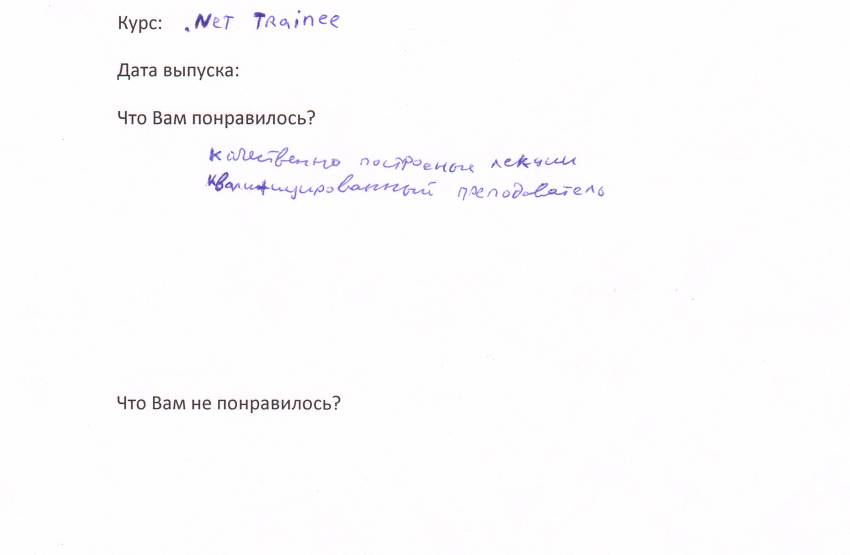 Курс: .Net Trainee
Дата выпуска:
Что Вам понравилось?
качественно построеные лекции
квалифицированный преподователь
Что Вам не понравилось?